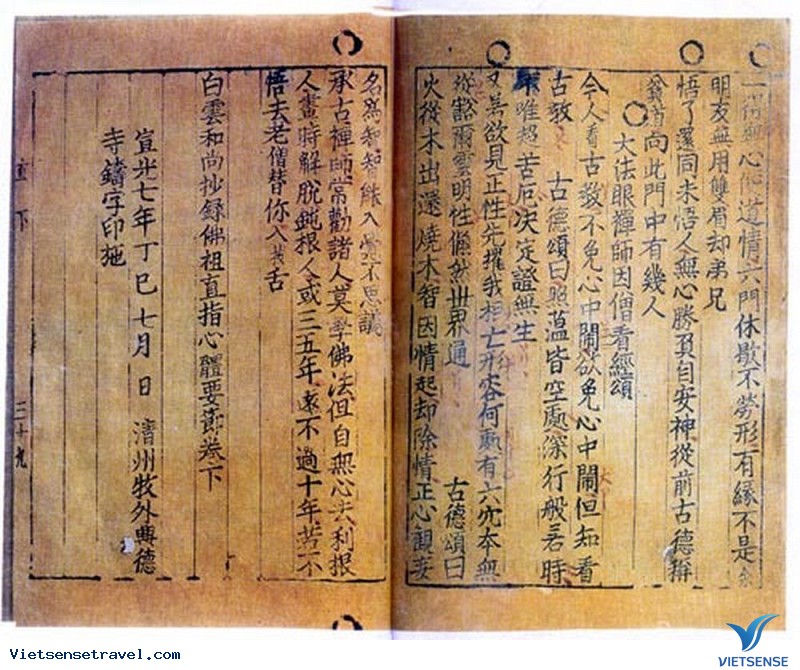 一得無心便道情六門休歇不勞形有緣不是余
明友無用雙眉却弟兄
悟了還同未悟人無心勝負自安神從前古德稱
向此門中有幾人
大法眼禪師因僧看經頌
今人看古教不免心中鬧欲免心中鬧但知看
古教 古德頌曰照蘊皆空處深行般若時
唯超苦厄決定證無生
欲見正性先 我相亡形容何處有六 本無
從豁爾雲明性儼然世界通 古德頌曰
火從木出還燒木智因情起却除情正心觀妄
名為智智能入 不思議
承古禪師常勸諸人莫學佛法但自無心去利根
人晝時解脫鈍根人或三五年遠不過十年若不
悟去老僧替你入 舌
白雲和尚抄錄佛祖直指心體要節卷下
宣光七年丁巳七月 日 清州牧外興德
寺鑄字印施
直下 三十九
Vietsensetravel.com
VIETSENSE